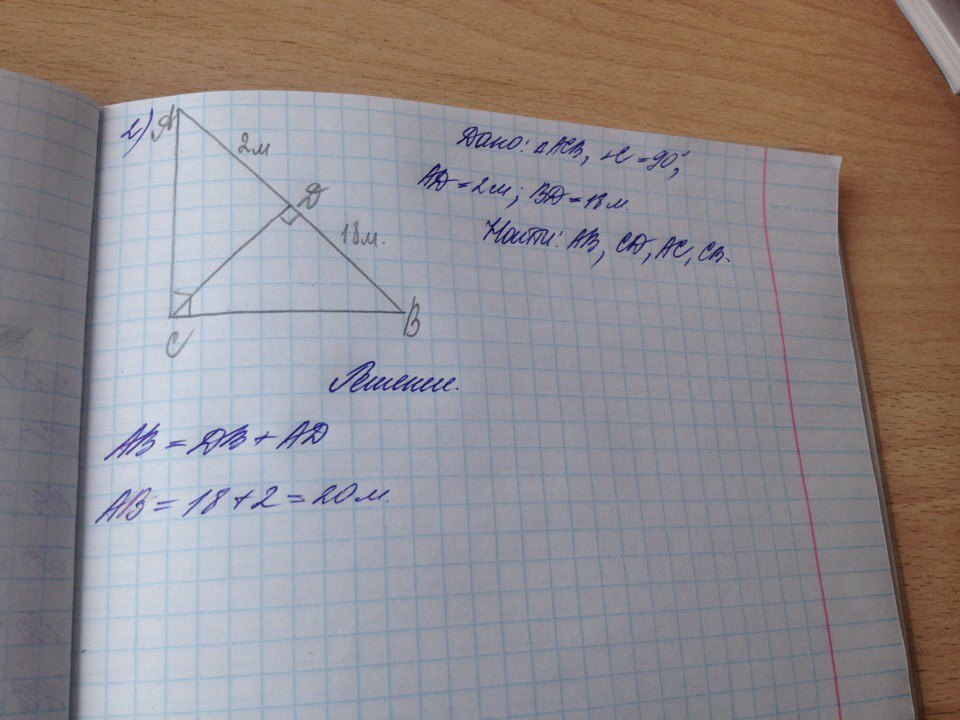 2)
A
2м
D
18м.
C
B
Дано: △ACB, ∠C=90°,
AD=2м; BD=18м.
Найти: AB, CD, AC, CB.
Решение.
AB = DB + AD
AB = 18 + 2 = 20м.